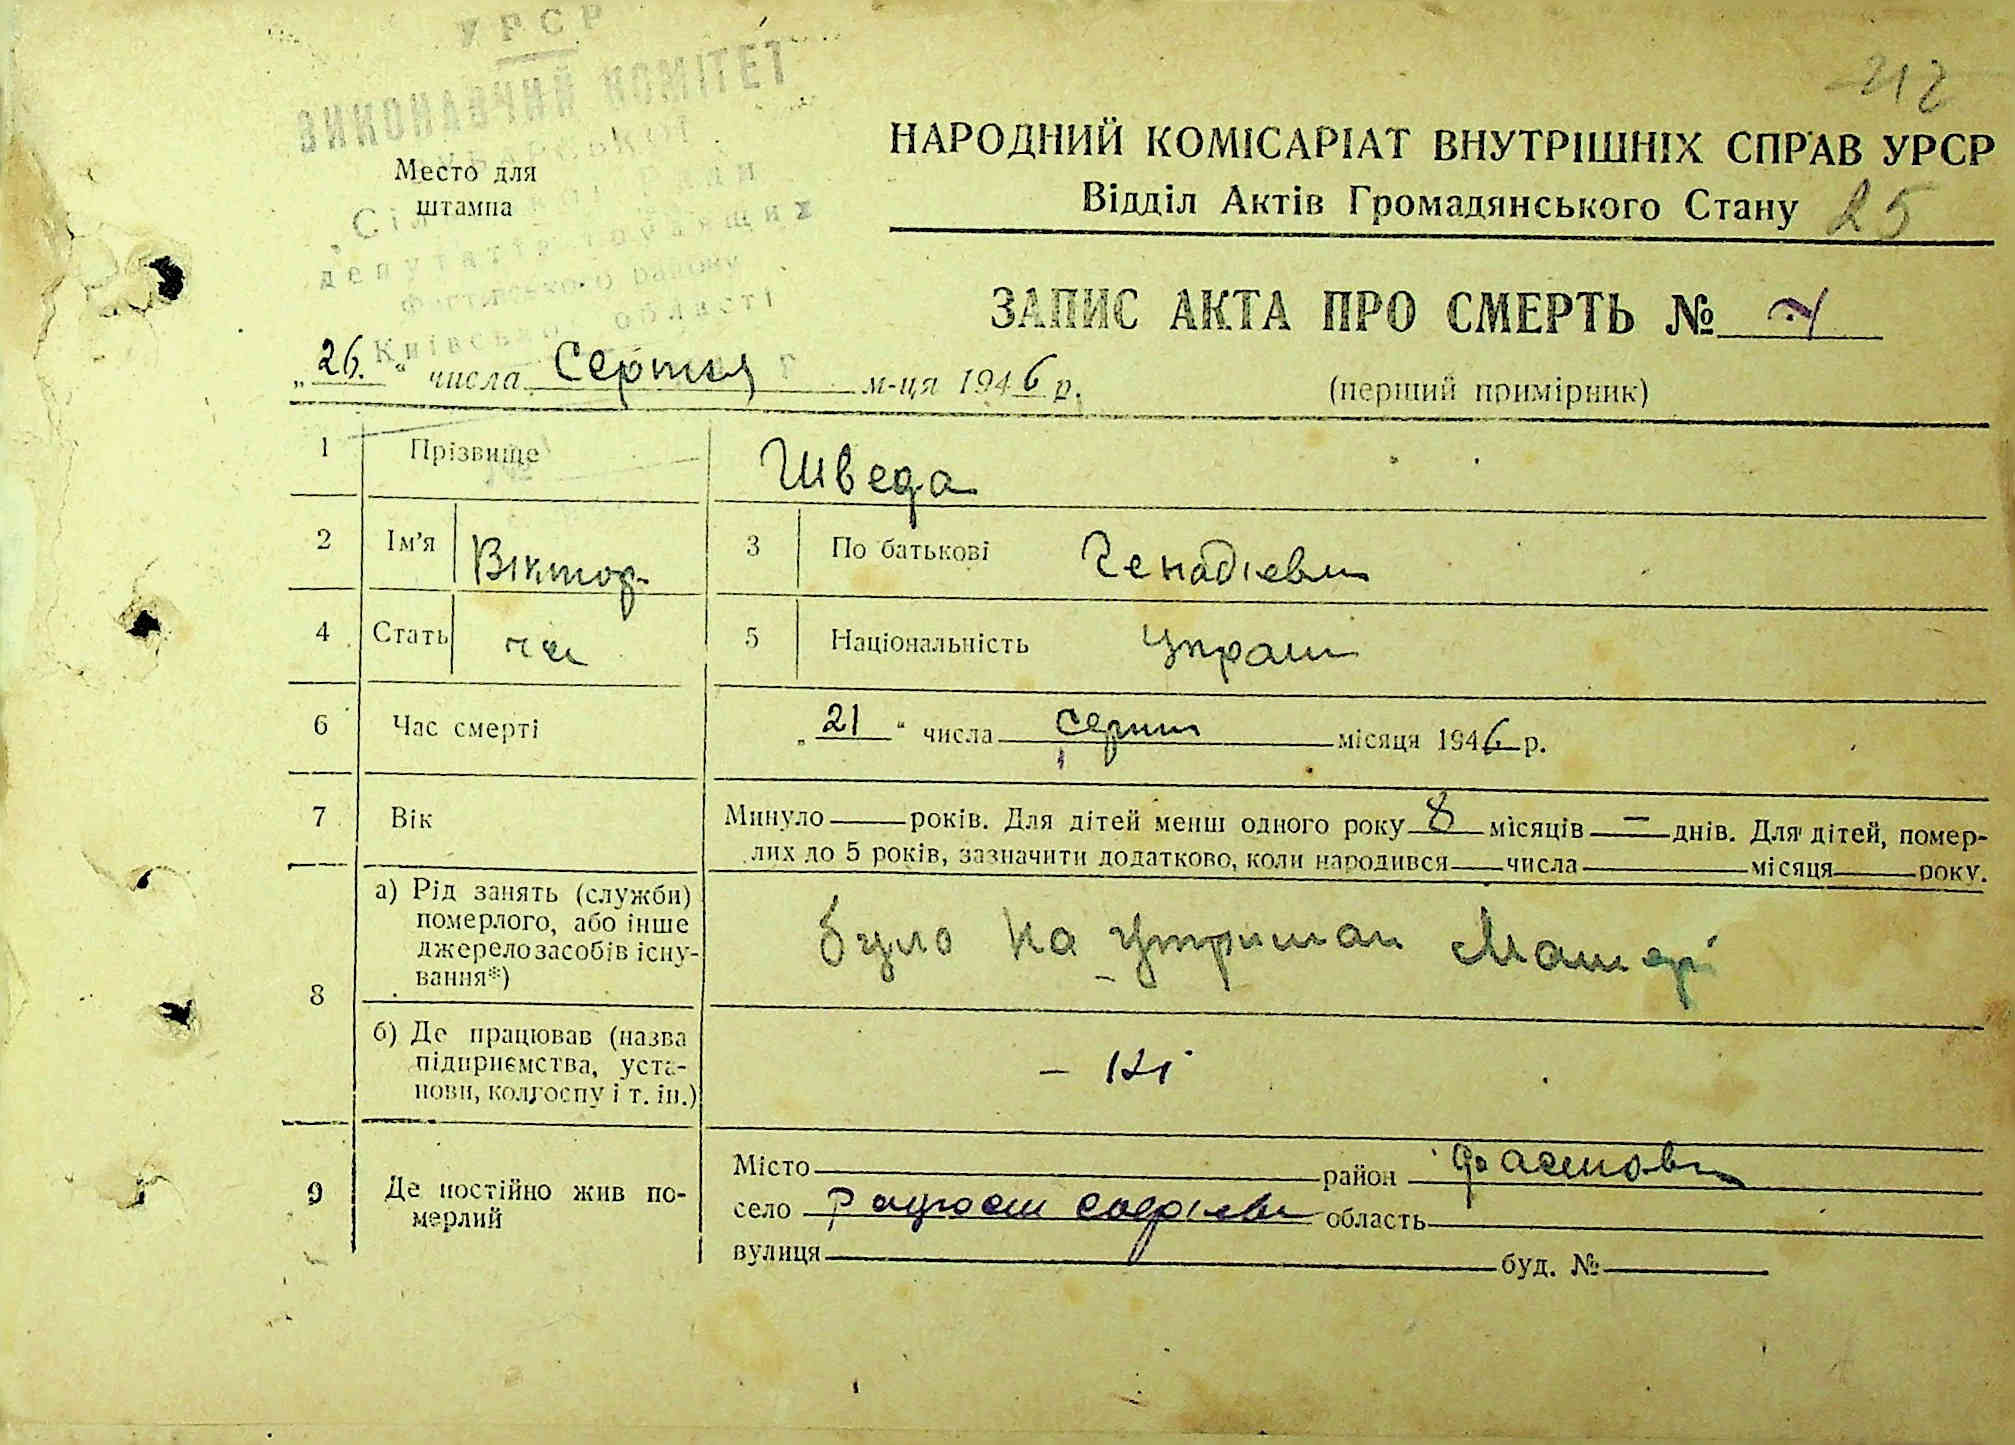 УРСР
ВИКОНАВЧИЙ КОМІТЕТ
депутатів трудящих
Фастівського району
Київської області
Место для
штампа
212
НАРОДНИЙ КОМІСАРІАТ ВНУТРІШНІХ СПРАВ УРСР
Відділ Актів Громадянського Стану 25
ЗАПИС АКТА ПРО СМЕРТЬ №
„26.“ числа Серпня м-ця 1946 р.
(перший примірник)
1 Прізвище Шведа
2 Ім'я Віктор 3 По батькові Генадієвич
4 Стать 5 Національність Украін
6 Час смерті „21“ числа серпн місяця 1946 р.
7 Вік Минуло — років. Для дітей менш одного року 8 місяців — днів. Для дітей, помер-
лих до 5 років, зазначити додатково, коли народився числа місяця року.
8 а) Рід занять (служби)
померлого, або інше
джерело засобів існу-
вання*)
було на утриман Матері
б) Де працював (назва
підприємства, уста-
нови, колгоспу і т. ін.)
— Ні
9 Де постійно жив по-
мерлий
Місто район Фастовск
село область
вулиця буд. №